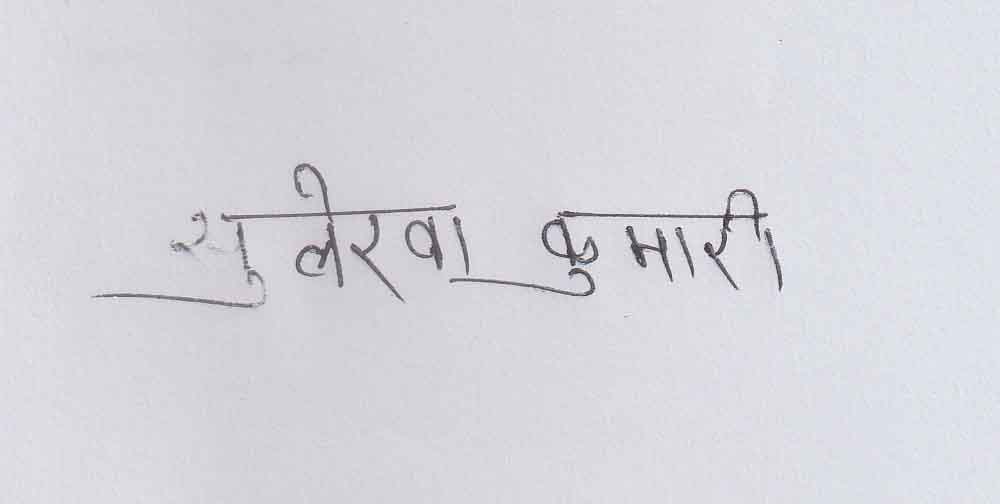 सुलेखा कुमारी